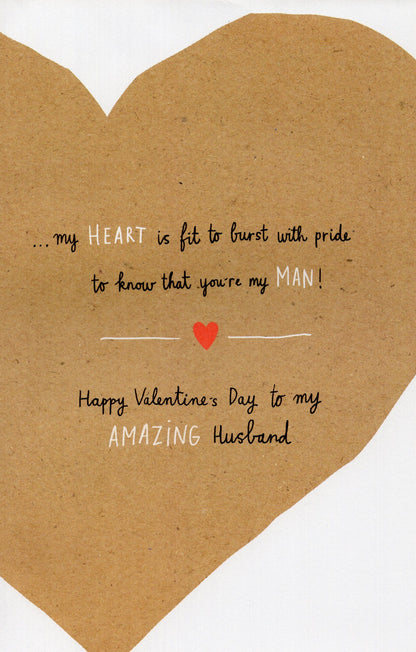 ...my HEART is fit to burst with pride
to know that you're my MAN!
Happy Valentine's Day to my
AMAZING Husband